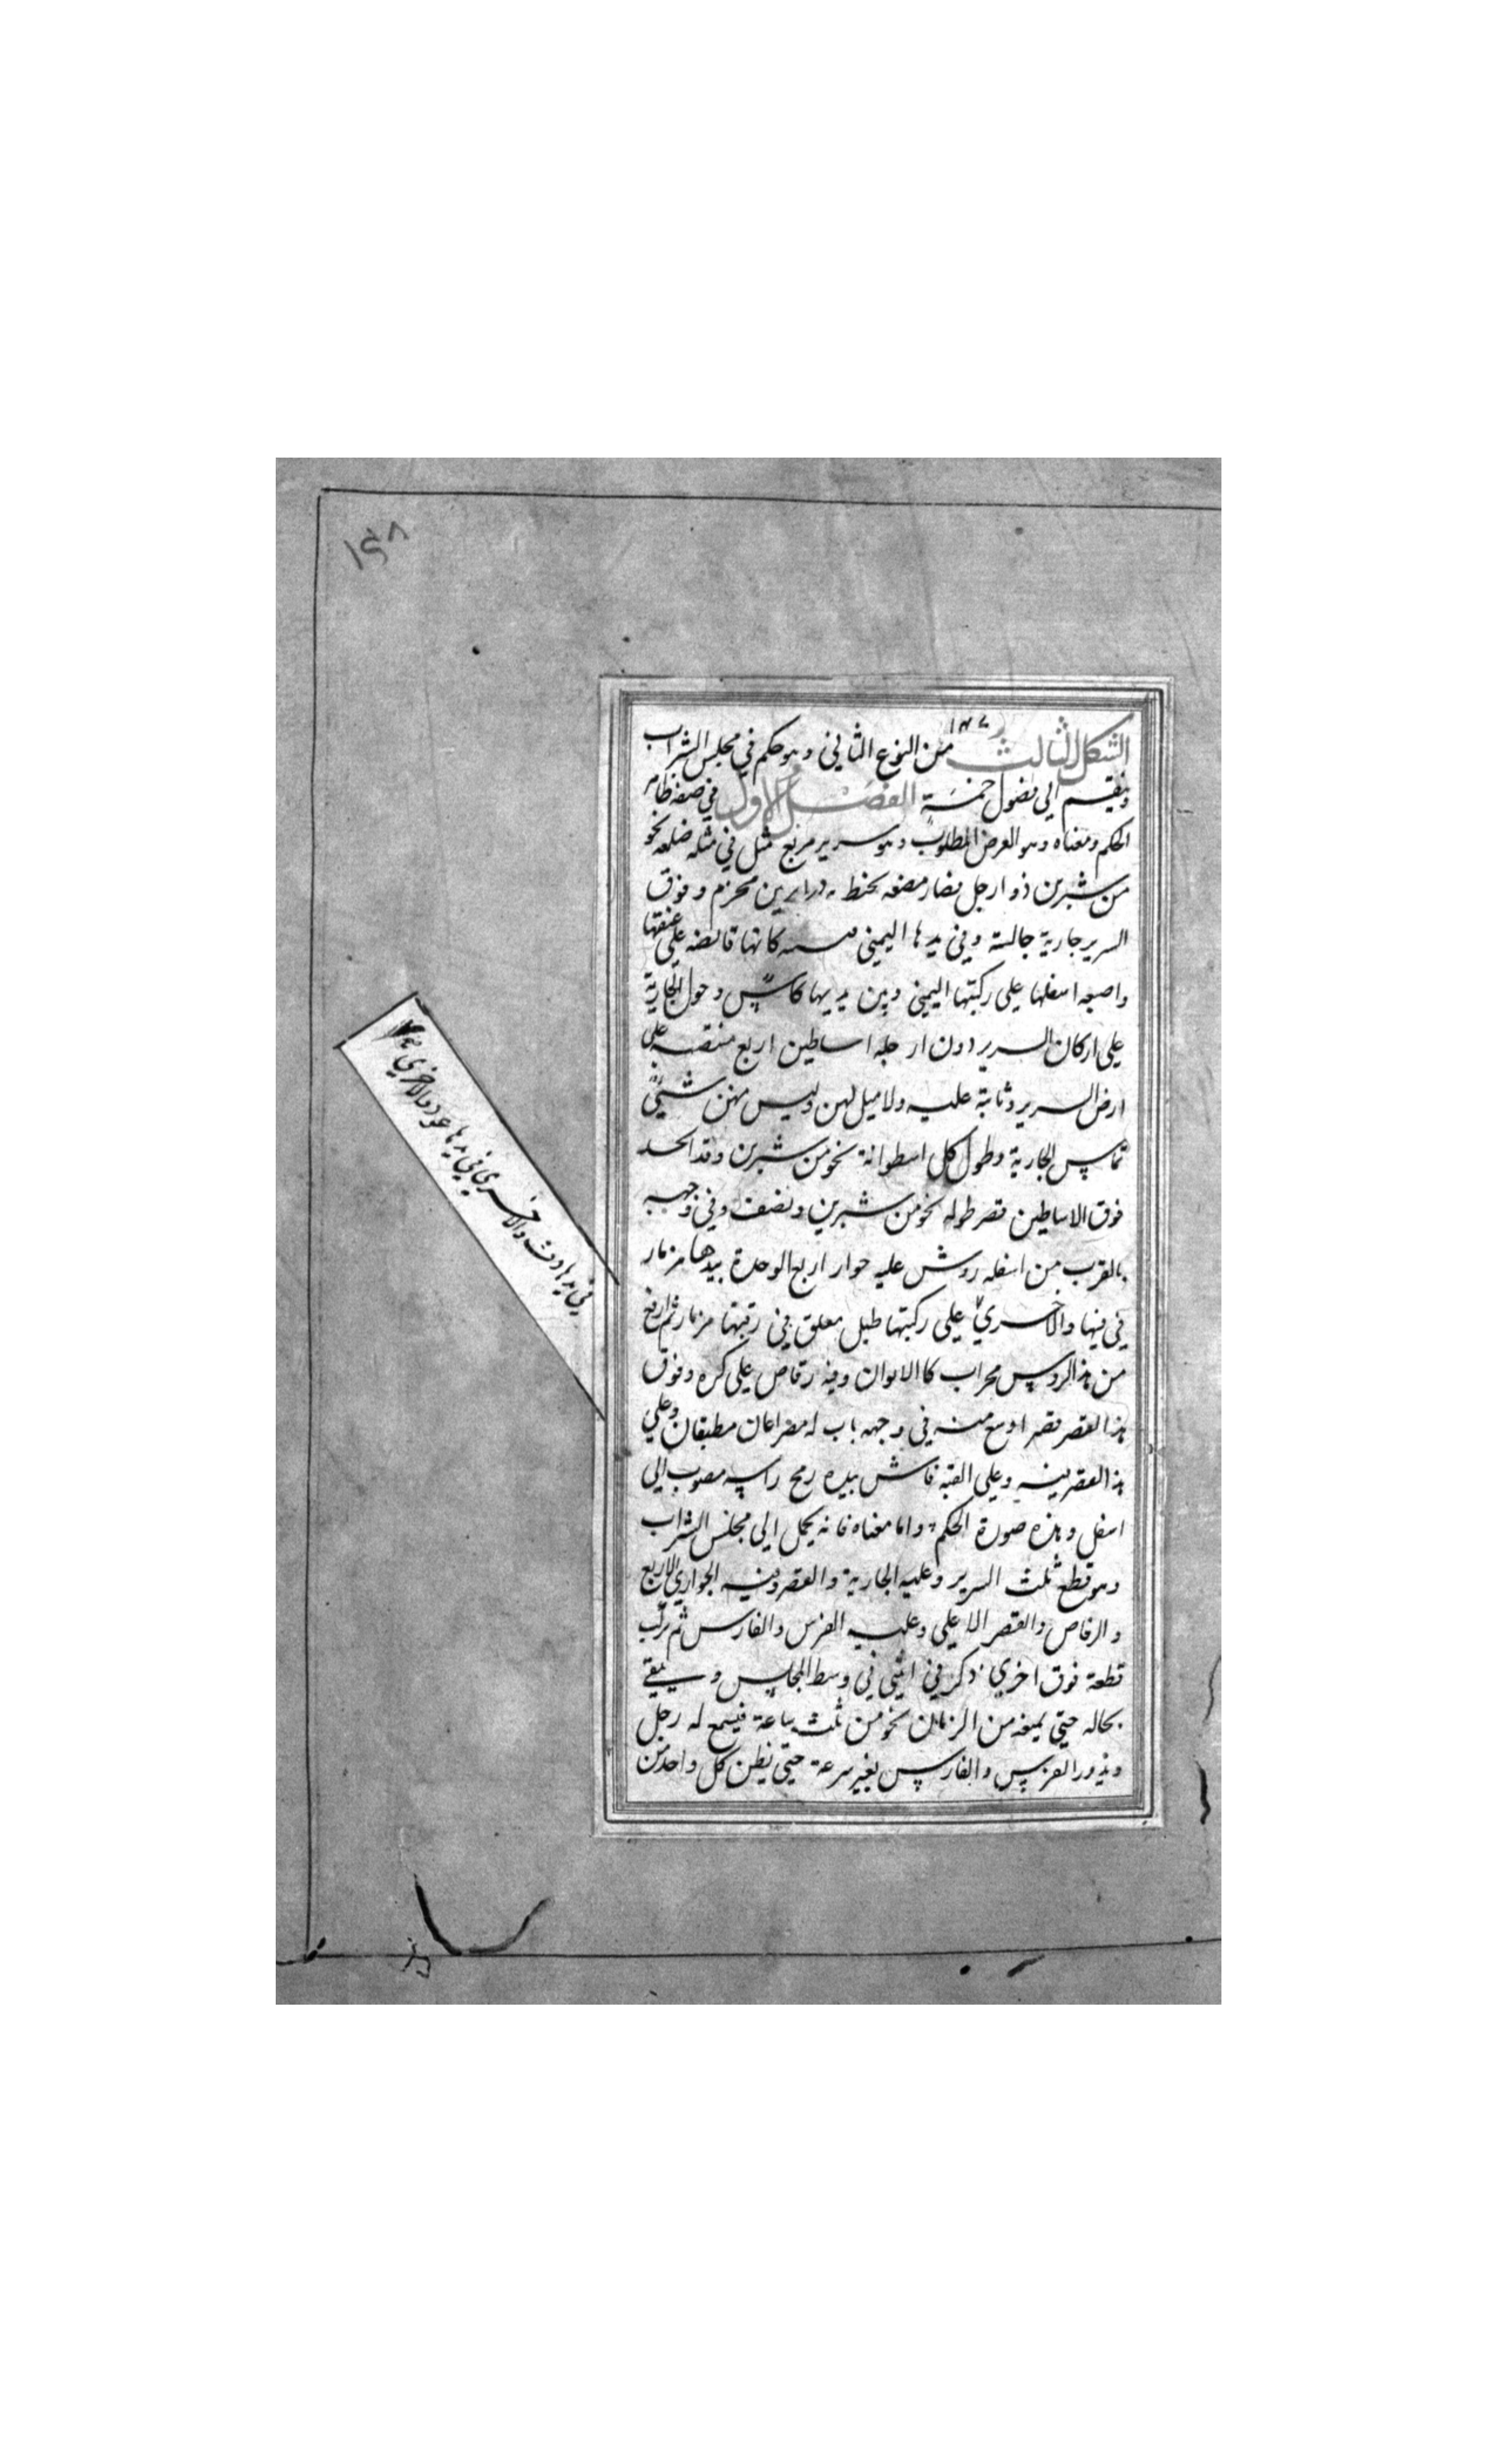 ١٤٨
١٤٧
الشكل الثالث من النوع الثاني وهو حكم في مجلس الشراب
وينقسم الي فصول خمسة الفصل الاول في صفة ظاهر
الحكم ومعناه وهو الغرض المطلوب وهو سرير مربع مثل في مثله ضلعه نحو
من شبرين ذو ارجل قصار مصنعه بخط ودرابزين مخرم وفوق
السرير جارية جالسة وفي يدها اليمني كانها قابضه علي عنقها
واضعه اسفلها علي ركبتها اليمني وبين يديها كاس وحول الجارية
علي اركان السرير دون ارجله اساطين اربع منتصبه علي
ارض السرير وثابتة عليه ولا ميل لهن وليس منهن شيئ
تماس الجارية وطول كل اسطوانة نحو من شبرين وقد اتخذ
فوق الاساطين قصر طوله نحو من شبرين ونصف وفي وجهه
بالقرب من اسفله روشن عليه جوار اربع الوحدة بيدها مزمار
في فيها والاخري علي ركبتها طبل معلق في رقبتها مزمار ثم ارفع
من هذا الروشن محراب كالايوان وفيه رقاص علي كره وفوق
هذا القصر قصر اوسع منه في وجهه باب له مصراعان مطبقان وعلي
هذا القصر وعلي القبة فارس بيده رمح راسه مصوب الي
اسفل وهذه صورة الحكم واما معناه فانه يحمل الي مجلس الشراب
وهو قطع ثلث السرير وعليه الجارية والقصر وفيه الجواري الاربع
والرقاص والقصر الاعلي وعليه الفرس والفارس ثم تركب
قطعة فوق اخري في وسط المجلس ويبقي
بحاله حتي يمضي من الزمان نحو من ثلث ساعة فيسمع له زجل
ويدور الفرس والفارس بغير سرعة حتي يظن كل واحد من
في يدها دف والاخري في يدها عود والاخري